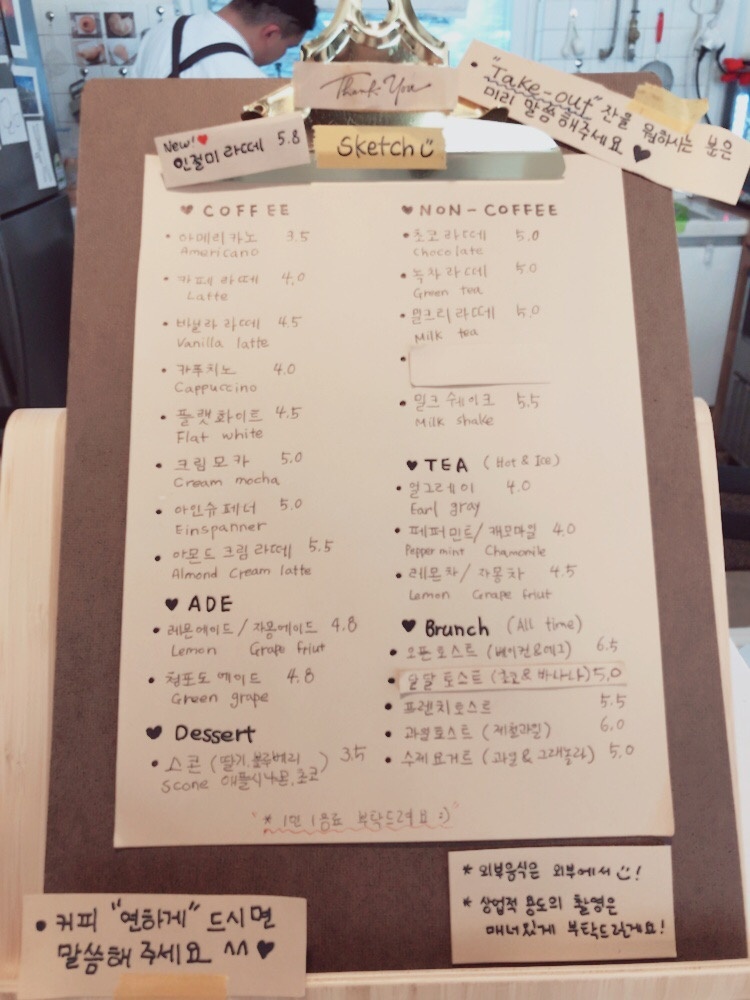 Thank You
Sketch
New! 인절미 라떼 5.8
"Take-out" 잔을 원하시는 분은
미리 말씀해주세요 ♥
♥ COFFEE
• 아메리카노 3.5
Americano
• 카페 라떼 4.0
Latte
• 바닐라 라떼 4.5
Vanilla latte
• 카푸치노 4.0
Cappuccino
• 플랫화이트 4.5
Flat white
• 크림모카 5.0
Cream mocha
• 아인슈페너 5.0
Einspanner
• 아몬드 크림 라떼 5.5
Almond Cream latte
♥ ADE
• 레몬에이드 / 자몽에이드 4.8
Lemon Grape friut
• 청포도 에이드 4.8
Green grape
♥ Dessert
• 스콘 (딸기, 블루베리 3.5
Scone 애플시나몬, 초코)
♥ NON-COFFEE
• 초코 라떼 5.0
Chocolate
• 녹차 라떼 5.0
Green tea
• 밀크티 라떼 5.0
Milk tea
• 밀크 쉐이크 5.5
Milk shake
♥ TEA (Hot & Ice)
• 얼그레이 4.0
Earl gray
• 페퍼민트/ 캐모마일 4.0
Pepper mint Chamomile
• 레몬차/ 자몽차 4.5
Lemon Grape friut
♥ Brunch (All time)
• 오픈토스트 (베이컨&에그) 6.5
• 달달 토스트 (초코 & 바나나) 5.0
• 프렌치토스트 5.5
• 과일토스트 (제철과일) 6.0
• 수제 요거트 (과일 & 그래놀라) 5.0
"* 1인 1음료 부탁드려요 :)"
• 커피 "연하게" 드시면
말씀해 주세요 ^^ ♥
* 외부음식은 외부에서 !
* 상업적 용도의 촬영은
매너있게 부탁드린게요!